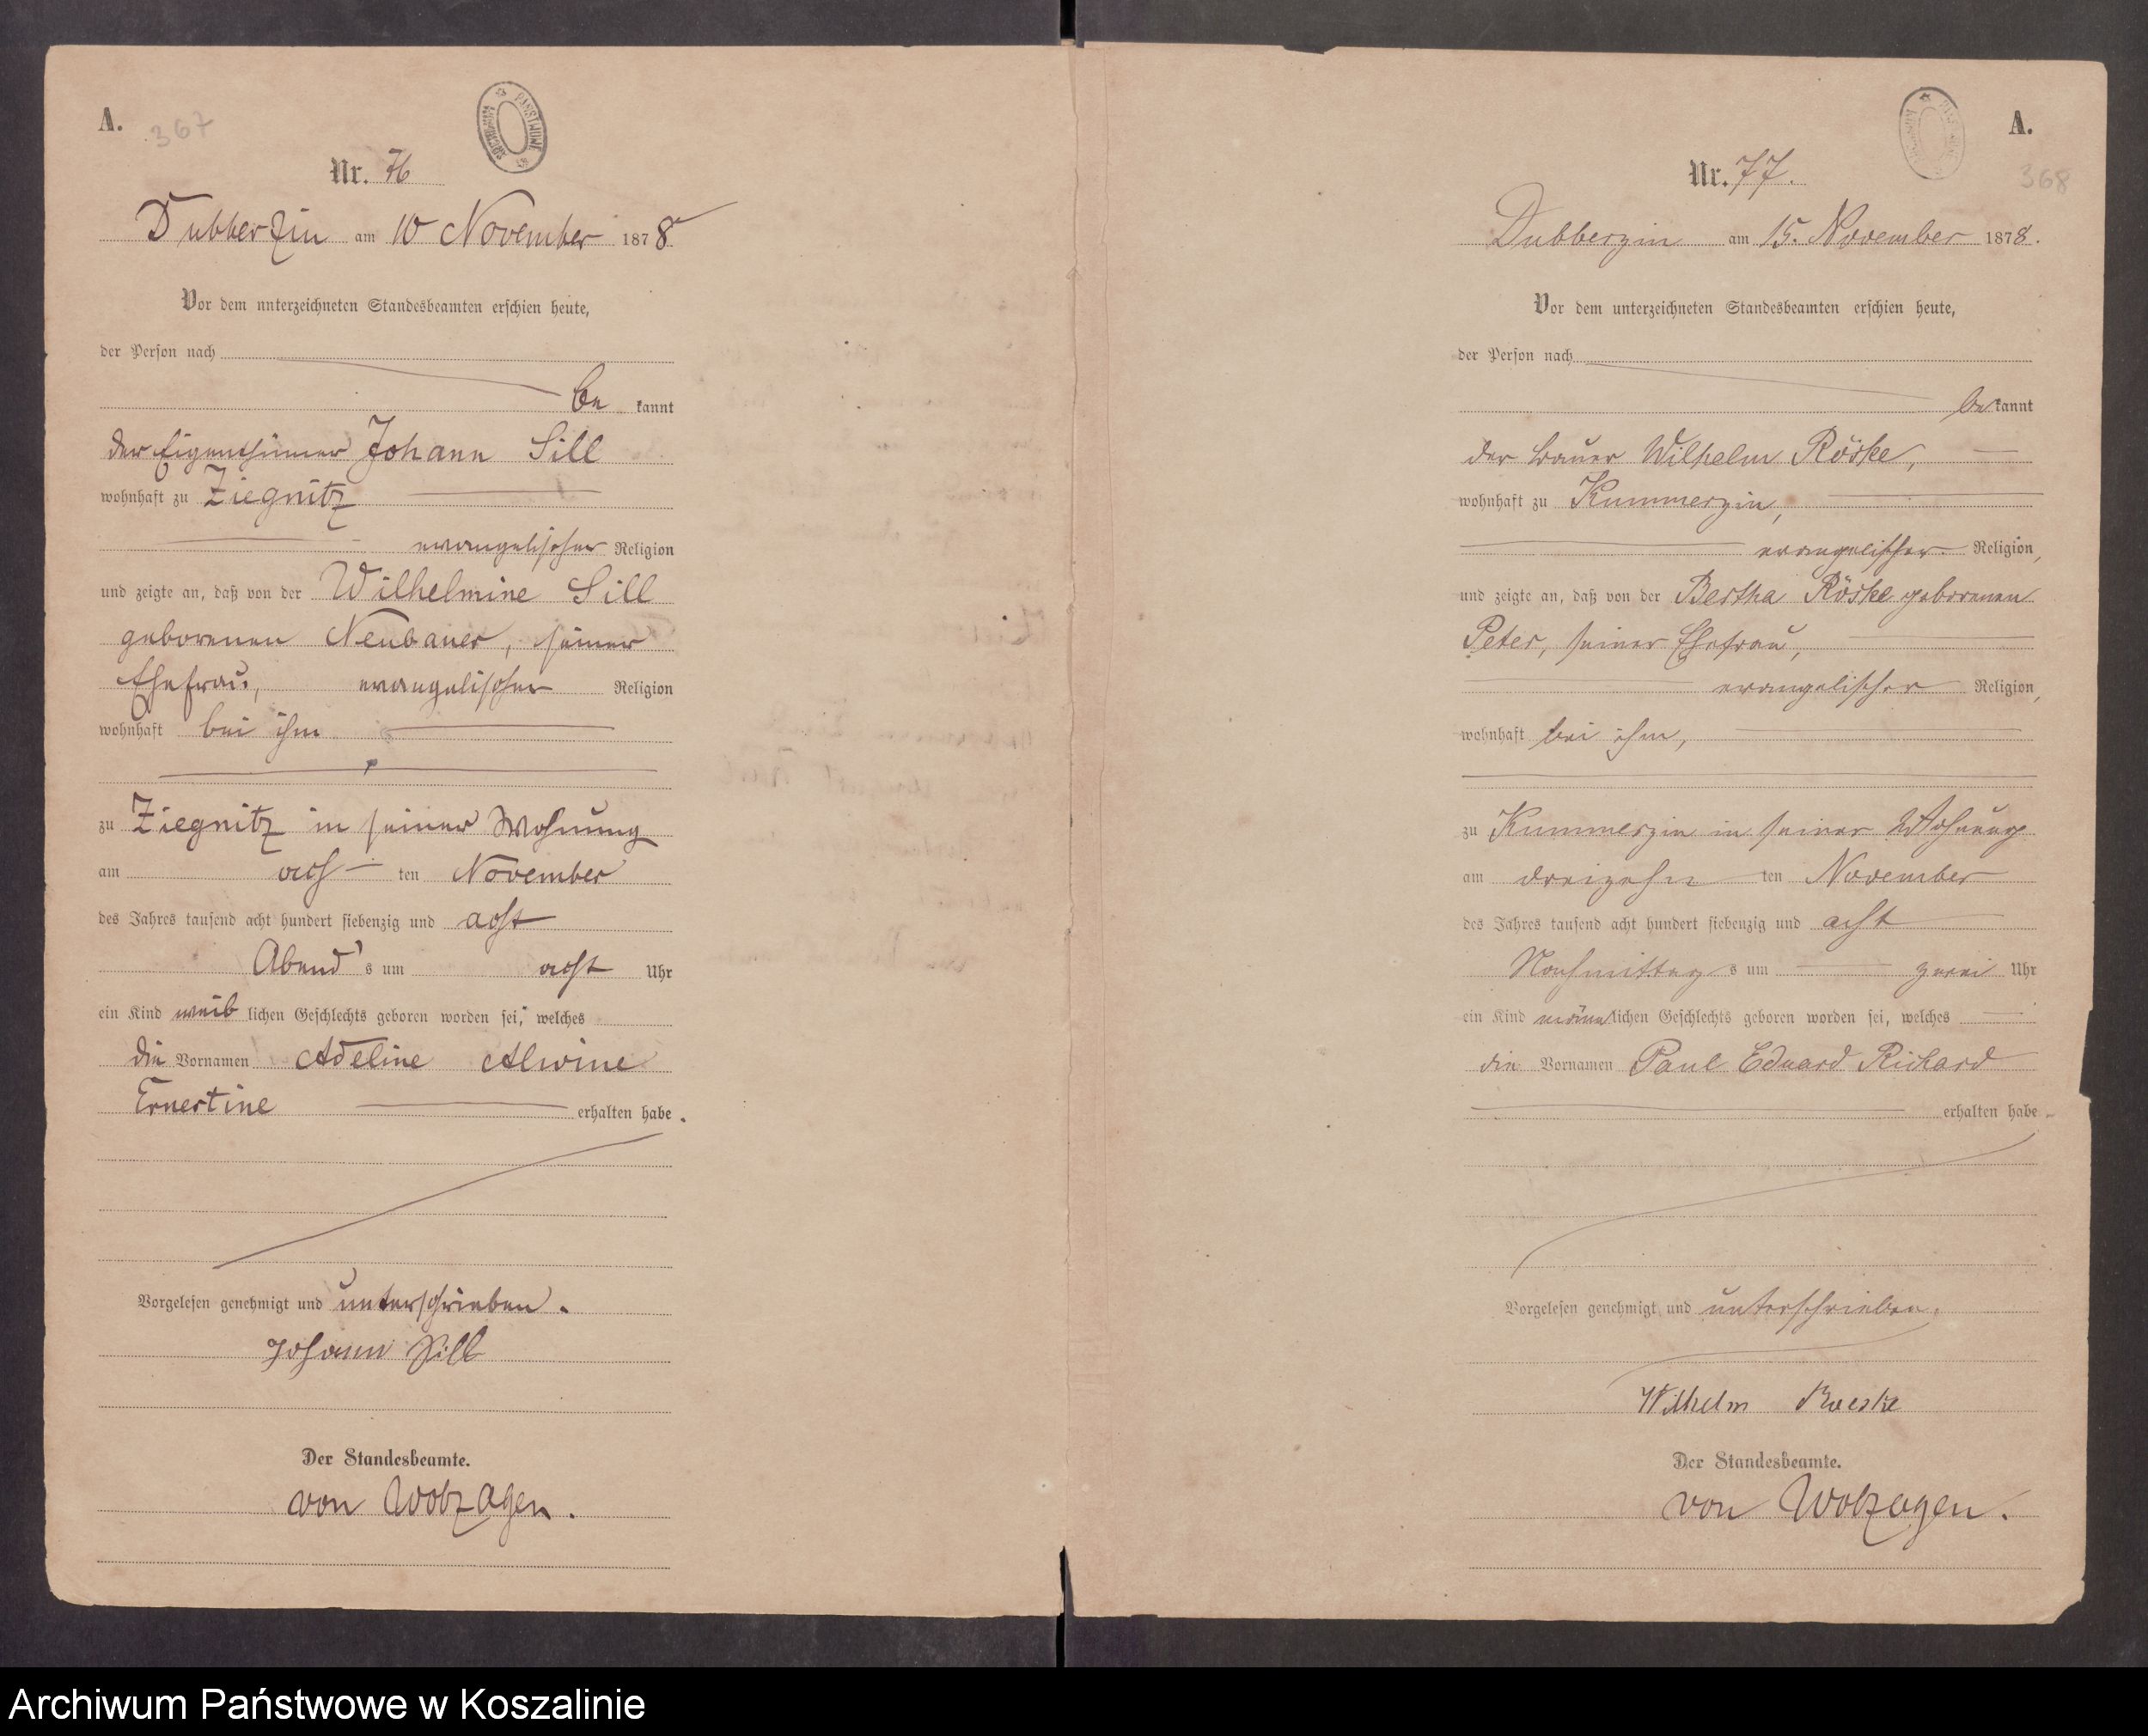 A.
367
ARCHIWUM PAŃSTWOWE
Nr. 76
Dubberzin am 10 November 1878
Vor dem unterzeichneten Standesbeamten erschien heute,
der Person nach
be kannt
der Eigenthümer Johann Sill
wohnhaft zu Ziegnitz
evangelischer Religion
und zeigte an, daß von der Wilhelmine Sill
geborenen Neubauer, seiner
Ehefrau, evangelischer Religion
wohnhaft bei ihm
zu Ziegnitz in seiner Wohnung
am ach ten November
des Jahres tausend acht hundert siebenzig und acht
Abend s um acht Uhr
ein Kind weib lichen Geschlechts geboren worden sei, welches
die Vornamen Adeline Alwine
Ernestine erhalten habe.
Vorgelesen genehmigt und unterschrieben.
Johann Sill
Der Standesbeamte.
von Wolzogen.
A.
368
Nr. 77.
Dubberzin am 15. November 1878.
Vor dem unterzeichneten Standesbeamten erschien heute,
der Person nach
be kannt
der Bauer Wilhelm Röske,
wohnhaft zu Kummerzin,
evangelischer Religion,
und zeigte an, daß von der Bertha Röske geborenen
Peter, seiner Ehefrau,
evangelischer Religion,
wohnhaft bei ihm,
zu Kummerzin in seiner Wohnung
am dreizehn ten November
des Jahres tausend acht hundert siebenzig und acht
Nachmittag s um zwei Uhr
ein Kind männ lichen Geschlechts geboren worden sei, welches
die Vornamen Paul Eduard Richard
erhalten habe.
Vorgelesen genehmigt und unterschrieben.
Wilhelm Roeske
Der Standesbeamte.
von Wolzogen.
Archiwum Państwowe w Koszalinie